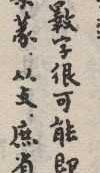 字很可能即
从攴，庶省